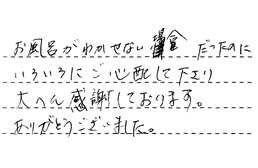 お風呂がわかせない だったのに
いろいろにご心配して下さり
大へん感謝しております。
ありがとうございました。